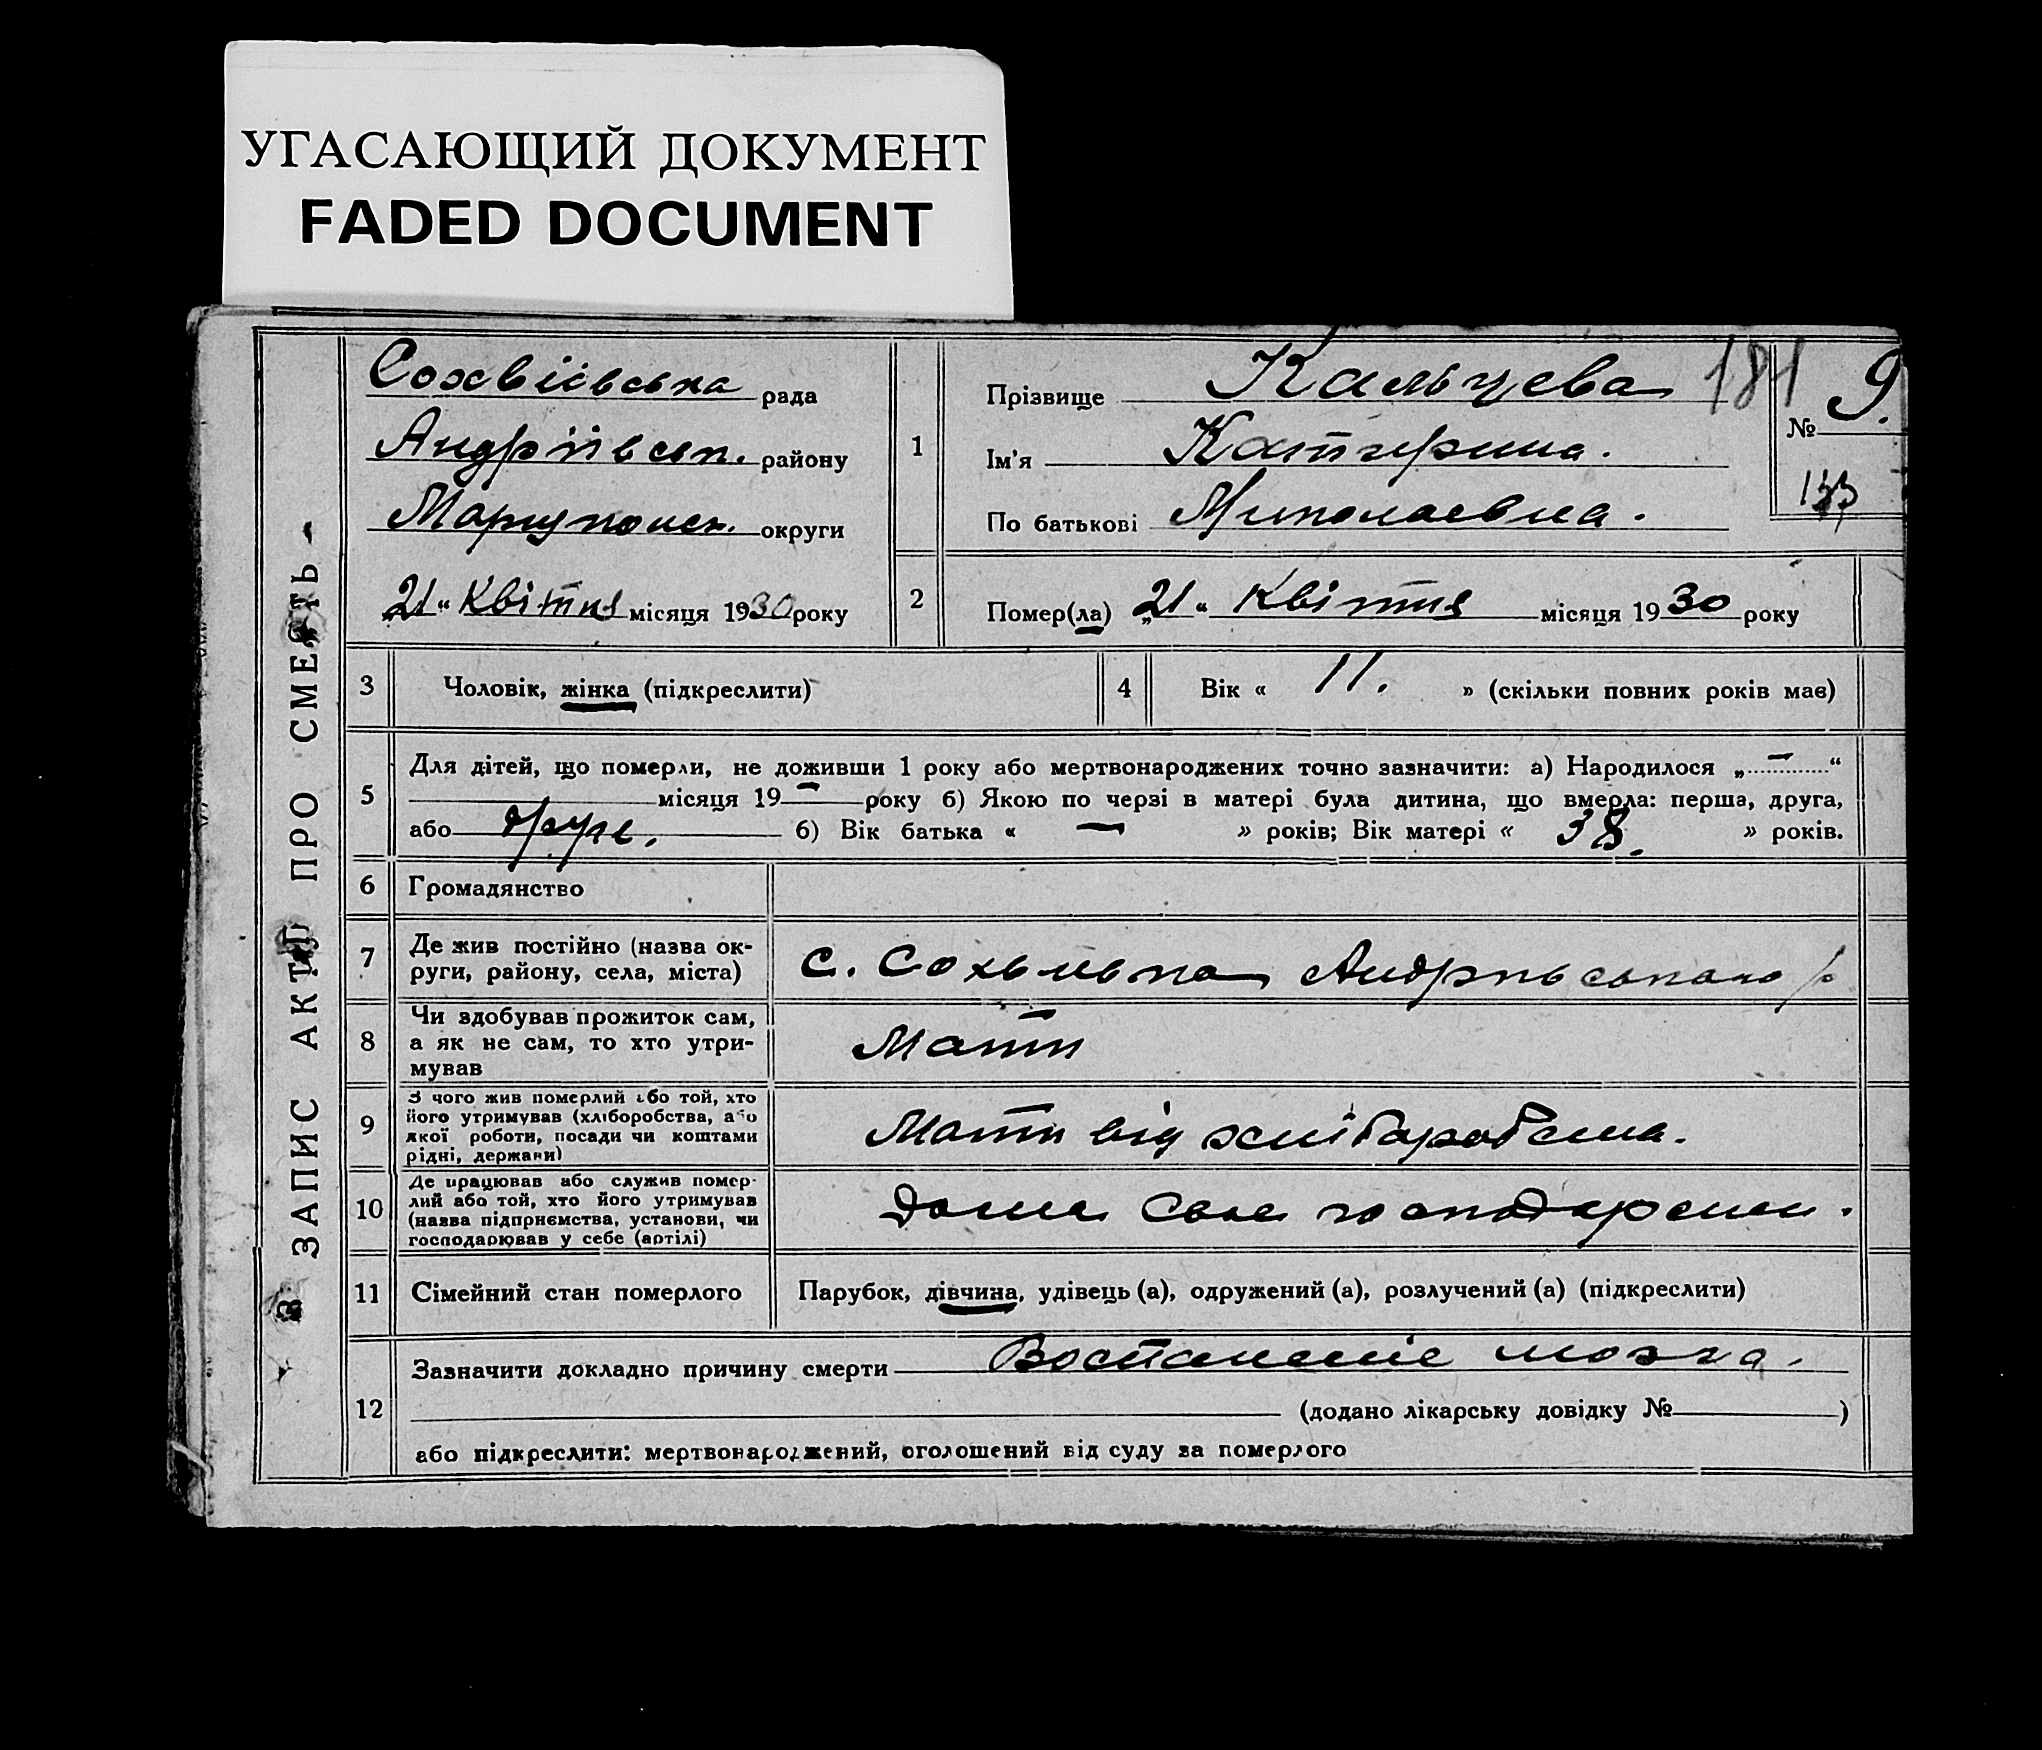 УГАСАЮЩИЙ ДОКУМЕНТ
FADED DOCUMENT
ЗАПИС АКТІВ ПРО СМЕРТЬ
Сохвіївська рада
Андріївськ. району
Маріупольск. округи
21 „ Квітня місяця 1930 року
1
Прізвище Кальцева
Ім'я Катерина.
По батькові Миколаевна.
181
№ 9.
133
2
Помер(ла) „21 “ Квітня місяця 1930 року
3
Чоловік, жінка (підкреслити)
4
Вік « 11. » (скільки повних років має)
5
Для дітей, що померли, не доживши 1 року або мертвонароджених точно зазначити: а) Народилося „ – “
місяця 19 – року б) Якою по черзі в матері була дитина, що вмерла: перша, друга,
або б) Вік батька « – » років; Вік матері « 38. » років.
6
Громадянство
7
Де жив постійно (назва ок-
руги, району, села, міста)
с. Андріівського р
8
Чи здобував прожиток сам,
а як не сам, то хто утри-
мував
Мати
9
З чого жив померлий або той, хто
його утримував (хліборобства, або
якої роботи, посади чи коштами
рідні, держави)
Мати від хліборобства.
10
Де працював або служив помер-
лий або той, хто його утримував
(назва підприємства, установи, чи
господарював у себе (артілі)
Дома свое
11
Сімейний стан померлого
Парубок, дівчина, удівець (а), одружений (а), розлучений (а) (підкреслити)
12
Зазначити докладно причину смерти Воспаленіе мозга.
(додано лікарську довідку № )
або підкреслити: мертвонароджений, оголошений від суду за померлого